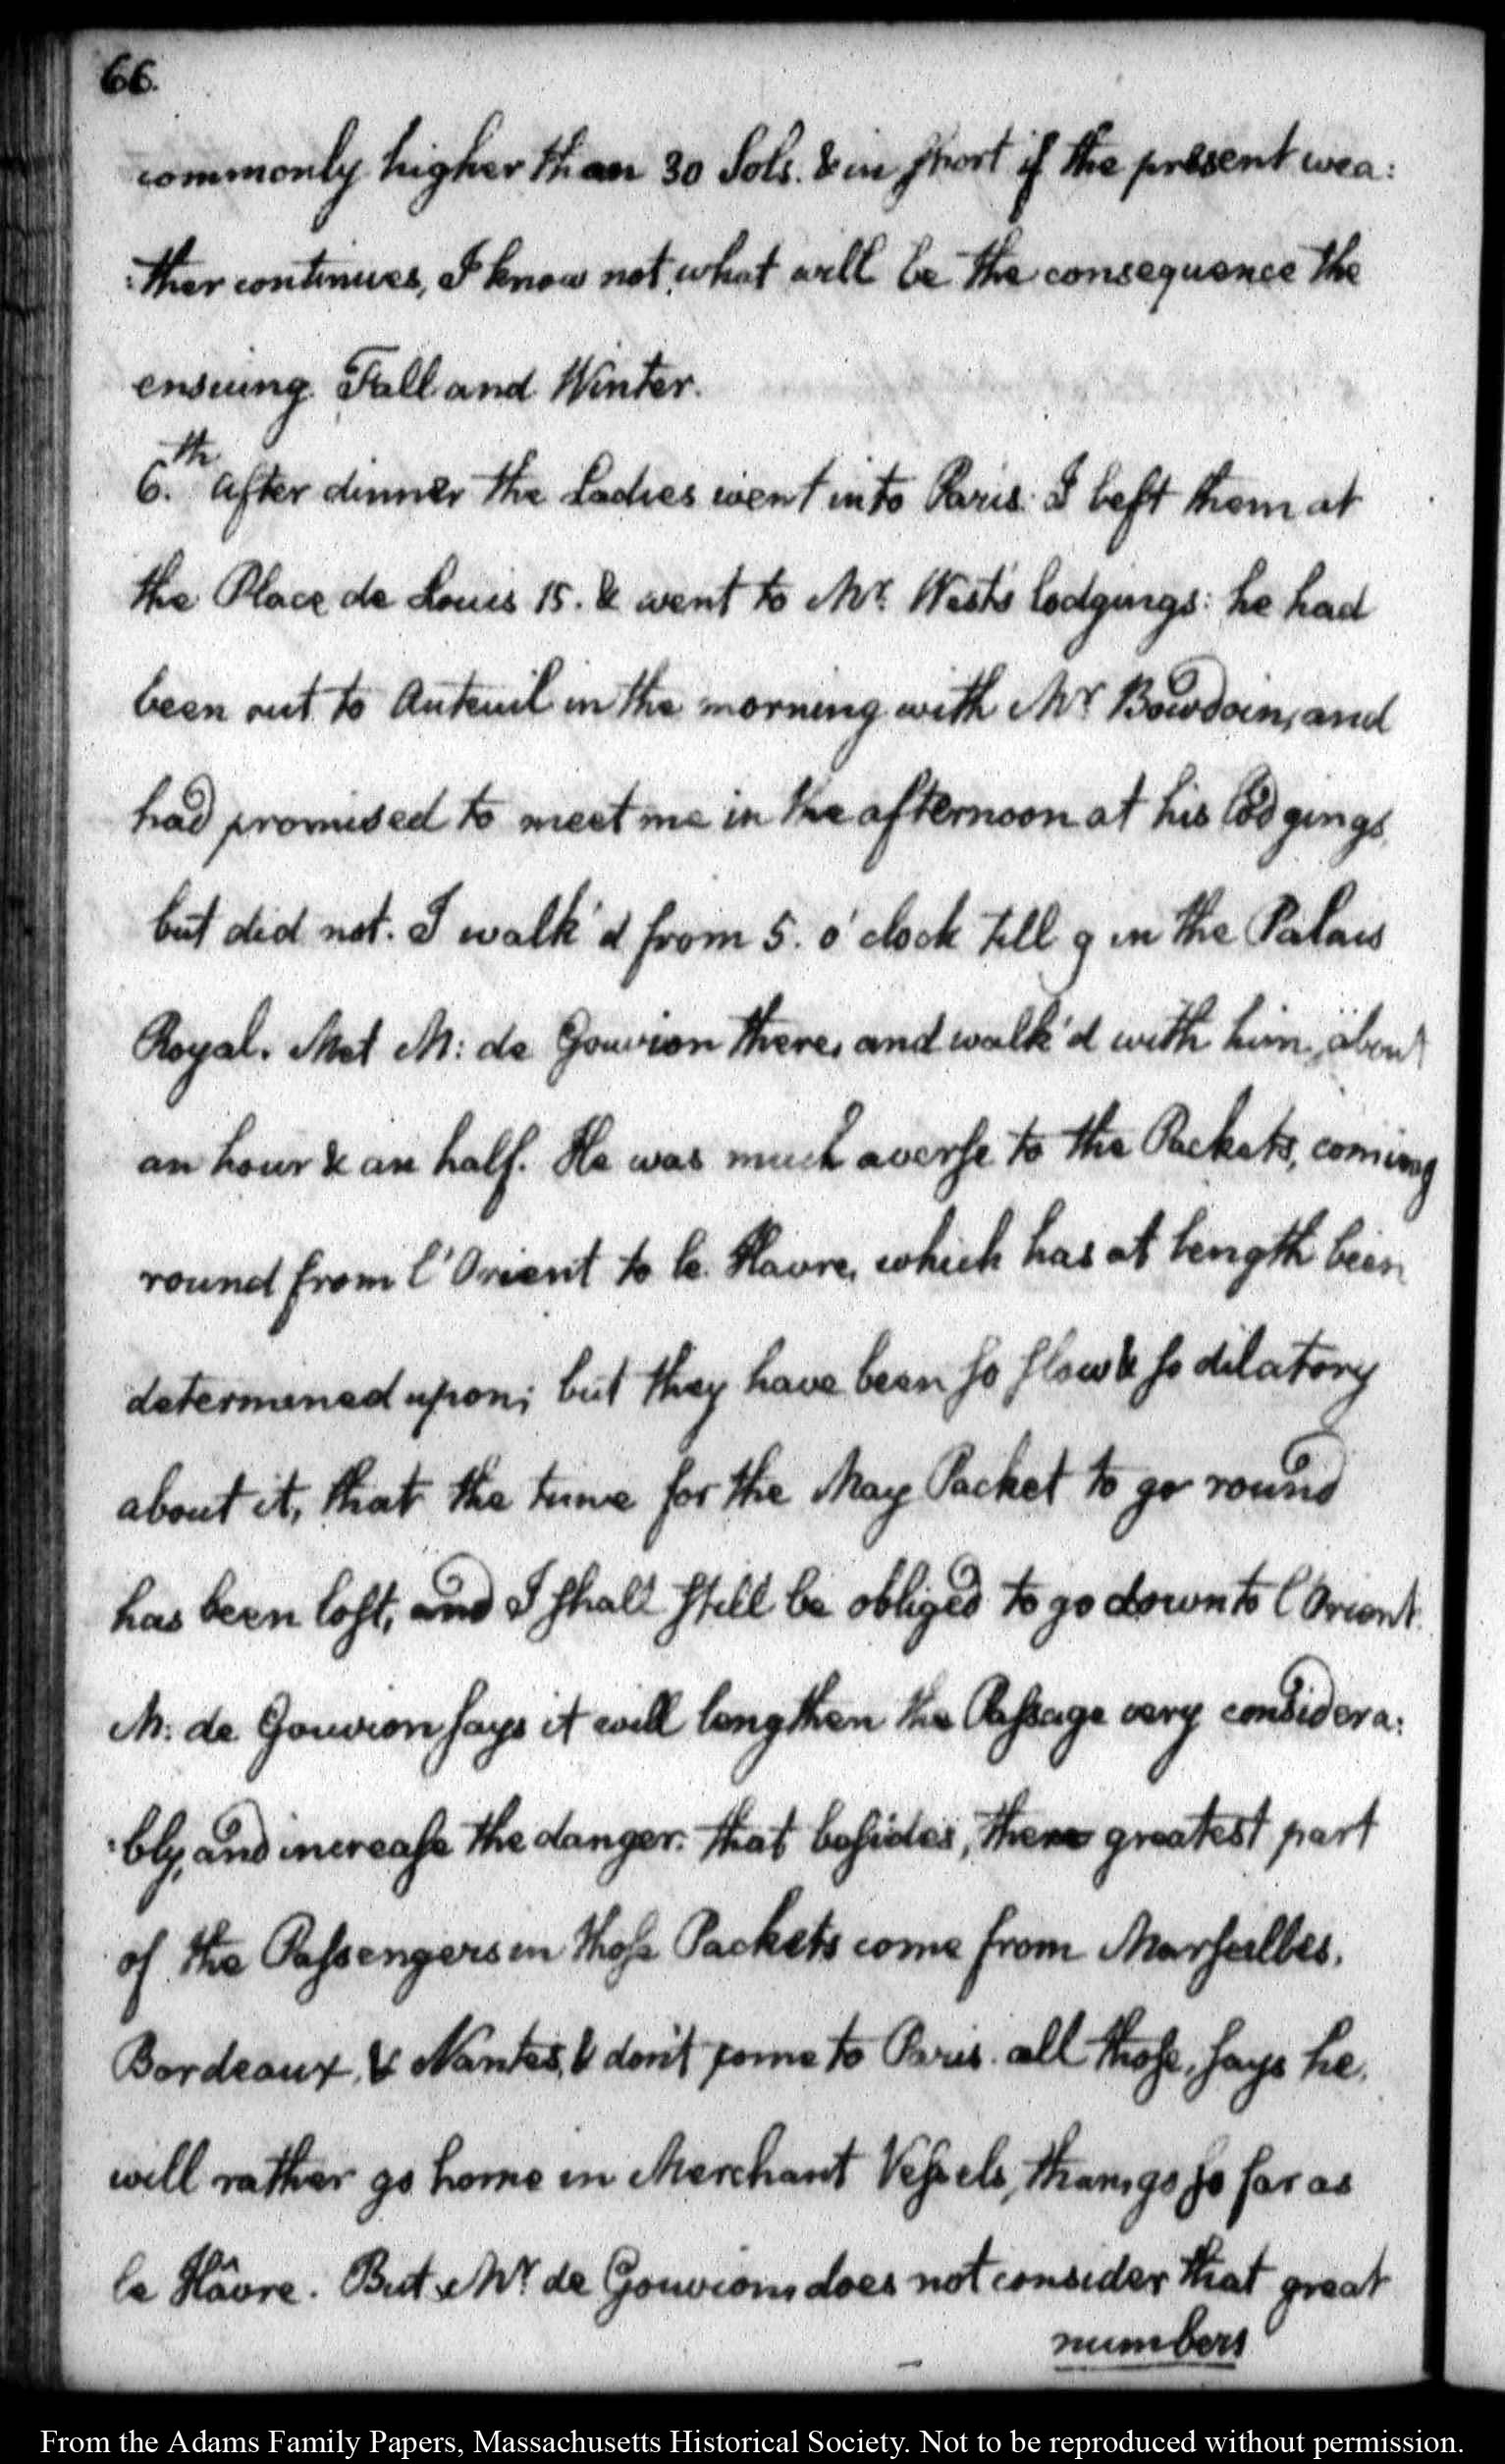 66.
commonly higher than 30 Sols. & in short if the present wea:
:ther continues, I know not what will be the consequence the
ensuing Fall and Winter.
6.th After dinner the Ladies went into Paris. I left them at
the Place de Louis 15. & went to Mr. West's lodgings: he had
been out to Auteuil in the morning with Mr Bowdoin, and
had promised to meet me in the afternoon at his lodgings,
but did not. I walk'd from 5. o'clock till 9 in the Palais
Royal. Met M: de Gouvion there, and walk'd with him, about
an hour & an half. He was much averse to the Packets, coming
round from l'Orient to le Havre, which has at length been
determined upon; but they have been so slow & so dilatory
about it, that the time for the May Packet to go round
has been lost, and I shall still be obliged to go down to l'Orient.
M: de Gouvion says it will lengthen the Passage very considera:
:bly, and increase the danger. that besides, the greatest part
of the Passengers in those Packets come from Marseilles,
Bordeaux, & Nantes, & don't come to Paris. all those, says he,
will rather go home in Merchant Vessels, than go so far as
le Hâvre. But Mr de Gouvion does not consider that great
numbers
From the Adams Family Papers, Massachusetts Historical Society. Not to be reproduced without permission.